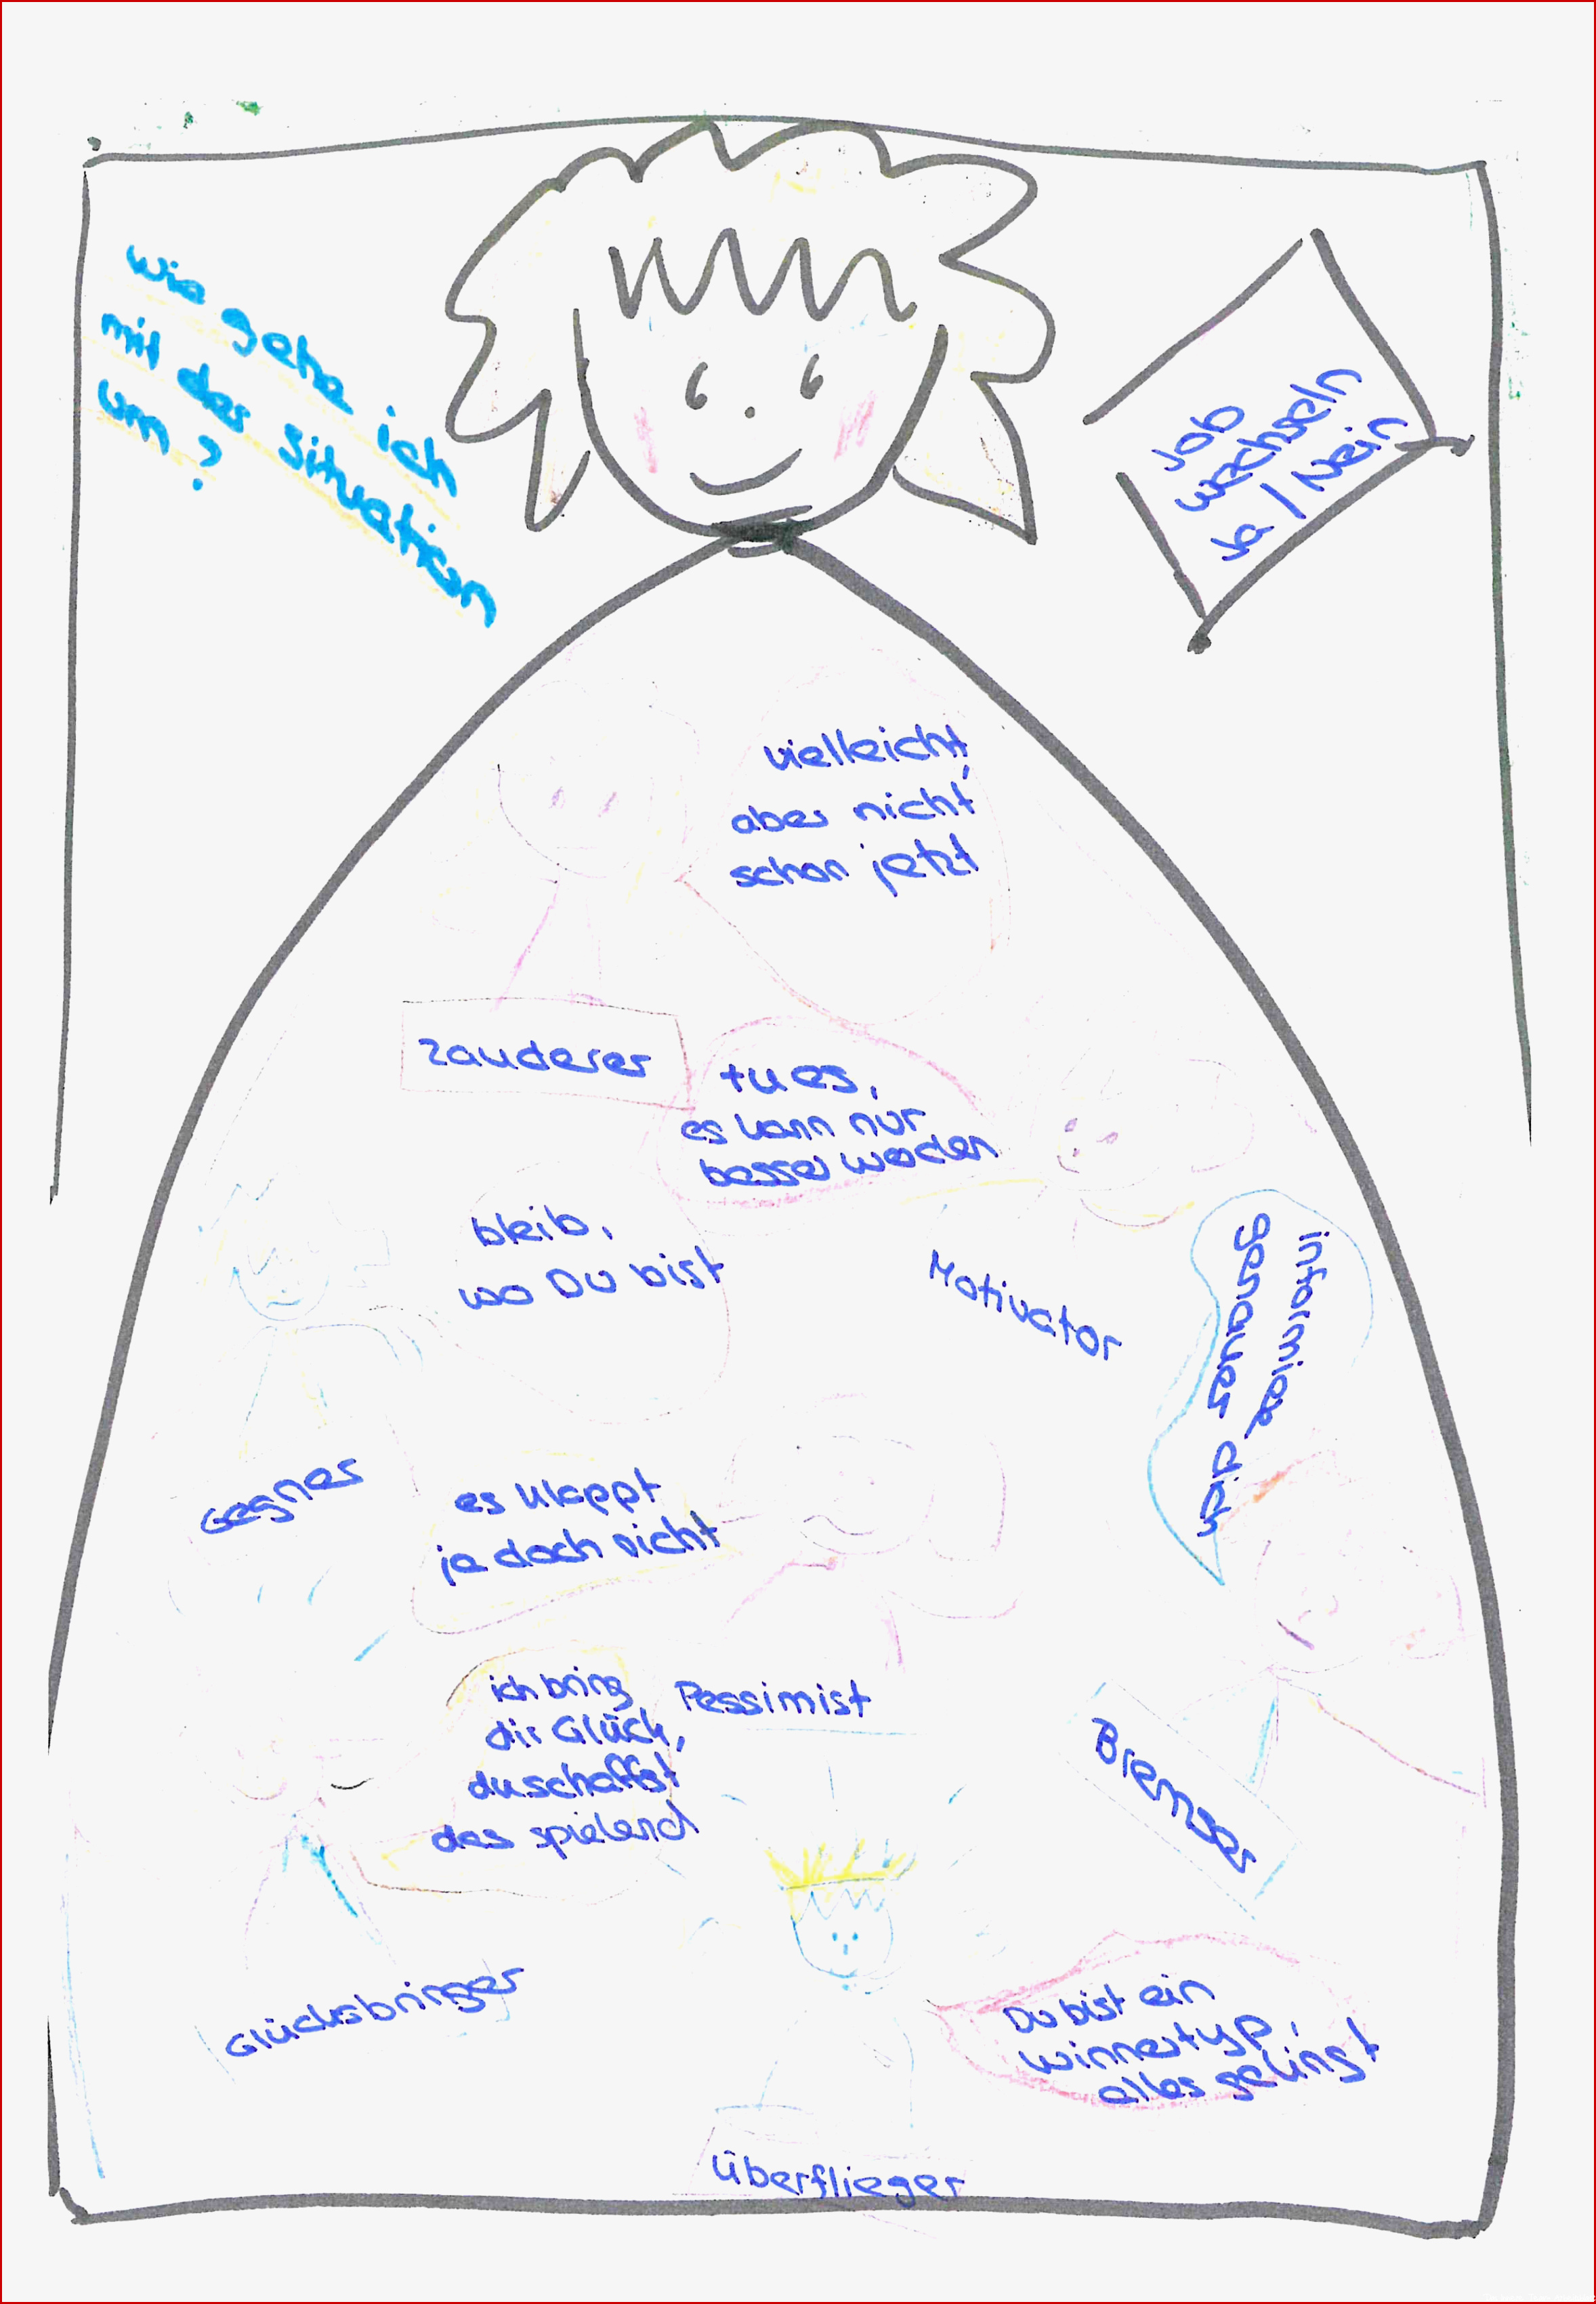 Wie gehe ich
mit der Situation
um?
Job
wechseln
Ja / Nein
vielleicht,
aber nicht
schon jetzt
Zauderer
tu es,
es kann nur
besser werden
bleib,
wo Du bist
Motivator
informier
genauer dich
Gegner
es klappt
ja doch nicht
ich bring
dir Glück,
du schaffst
das spielend
Pessimist
Bremser
Glücksbringer
Du bist ein
Winnertyp,
alles gelingt
Überflieger